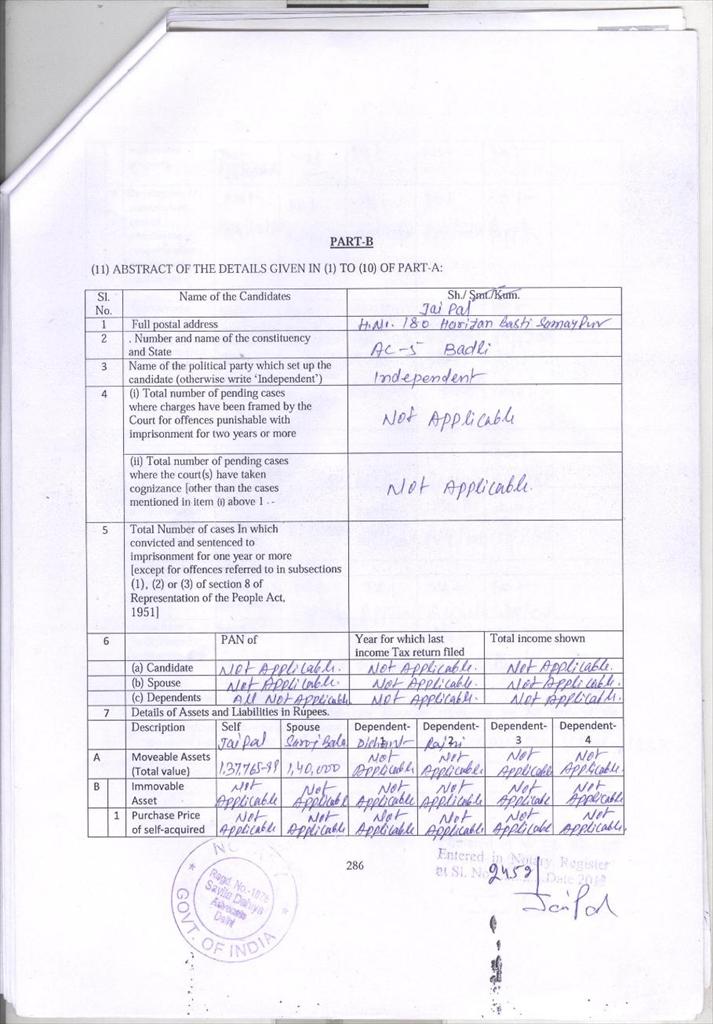 PART-B
(11) ABSTRACT OF THE DETAILS GIVEN IN (1) TO (10) OF PART-A:
Sl. No. Name of the Candidates Sh./ Smt./Kum.
Jai Pal
1 Full postal address H.No. 180 Harijan Basti Samaypur
2 . Number and name of the constituency
and State AC-5 Badli
3 Name of the political party which set up the
candidate (otherwise write 'Independent') Independent
4 (i) Total number of pending cases
where charges have been framed by the
Court for offences punishable with
imprisonment for two years or more
Not Applicable
(ii) Total number of pending cases
where the court(s) have taken
cognizance [other than the cases
mentioned in item (i) above 1 --
Not Applicable.
5 Total Number of cases In which
convicted and sentenced to
imprisonment for one year or more
[except for offences referred to in subsections
(1), (2) or (3) of section 8 of
Representation of the People Act,
1951]
6 PAN of Year for which last
income Tax return filed Total income shown
(a) Candidate Not Applicable. Not Applicable. Not Applicable.
(b) Spouse Not Applicable. Not Applicable. Not Applicable.
(c) Dependents All Not Applicable Not Applicable. Not Applicable.
7 Details of Assets and Liabilities in Rupees.
Description Self Spouse Dependent-1 Dependent-2 Dependent-3 Dependent-4
Jai Pal Saroj Bala
A Moveable Assets
(Total value) 1,40,000 Not Applicable Not Applicable. Not Applicable Not Applicable.
B Immovable
Asset Not Applicable Not Applicable Not Applicable Not Applicable Not Applicable Not Applicable
1 Purchase Price
of self-acquired Not Applicable Not Applicable Not Applicable Not Applicable Not Applicable Not Applicable.
286
Entered in Notary Register
at Sl. No. 2459 Date 2013
Jai Pal
NOTARY
Regd. No.-1876
Advocate
Delhi
GOVT. OF INDIA